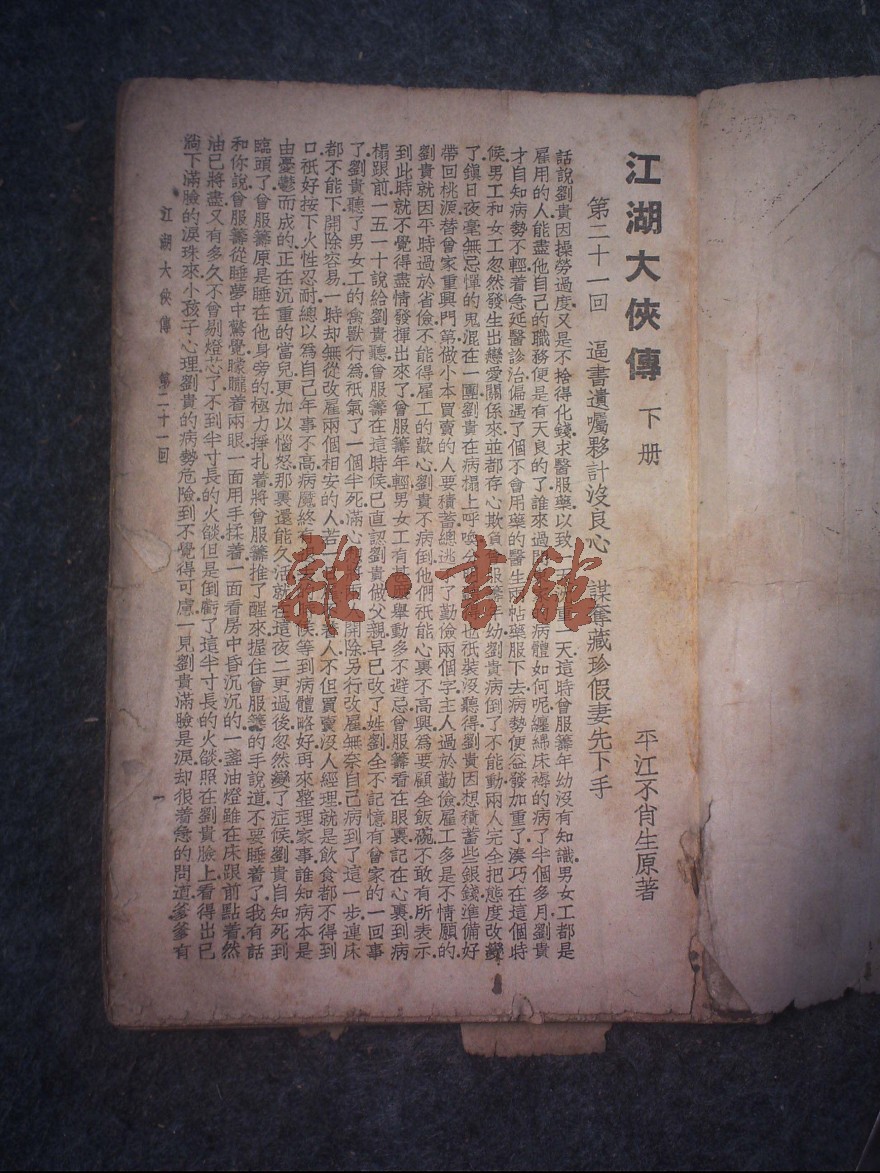 江湖大俠傳 下册
平江不肖生原著
第二十一回 逼書遺囑夥計沒良心 謀奪藏珍假妻先下手
話說劉貴因操勞過度又是不捨得化錢求醫服藥以致 重一天這時曾服籌年幼沒有知識男女工都是
雇用的人能盡他自己的職務便是有天良的了誰來過問 病體如何呢纏綿床褥的病了半個多月劉貴
才自知病勢不輕着急延醫診治偏遇了個不會用藥的醫生兩帖藥服下去病勢便益發加重了湊巧在這個時
候男工和女工忽然發生出戀愛關係來並都存心欺負曾服籌年幼劉貴病倒了不能動兩人完全把態度改變
了鎭日夜毫無忌憚的鬼混在一團劉貴在病榻上呼喚 也祇裝沒聽得劉貴因想積蓄些銀錢準備好
帶回桃源替曾家重興門第做小本買賣的人要積蓄總逃 了勤儉兩個字主人過於勤儉雇工多是不情願的
劉貴就因平時過於省儉不能得雇工的歡心劉貴不病倒他們祇能心裏不高興爲要顧全飯碗不敢有所表示
到此時就不覺得盡情發揮出來了曾服籌年輕男女工有甚麽舉動多不避忌曾服籌看在眼裏記在心裏到病
榻跟前一五一十說給劉貴聽曾服籌在這時候已直認劉貴做父親早已改了姓劉全不記憶有曾家的一回事
了劉貴聽了男女工的禽獸行爲祇氣了一個半死滿心 開除另行改雇無奈自己病到了這一步連床
都不能下開除容易一時却無從改雇兩個相安的人若一 人不但買賣沒人經理就是飲食都不得到
口祇好按下火性忍耐總以爲自己年事不高病魔終有 候等到病體略好再來整理家事誰知病本是
由憂鬱而成的正在沉重的當兒更加以惱怒那裏還能久活就在這夜二更過後忽然變了症候劉貴自知死到
臨頭了曾服籌原是睡在他身旁的極力掙扎着將曾服籌推了醒來握住曾服籌的手說道不要睡着了我有話
和你說曾服籌從睡夢中驚覺矇矓着兩眼一面用手揉着一面看房中昏沉沉的一盞油燈雖在床跟前點着然
油已將盡又有多久不曾剔燈芯了不到半寸長的火燄但是倒虧了這半寸長的火燄照在劉貴臉上看得出已
淌下滿臉的淚珠來小孩子心理劉貴的病勢危險到不覺得可慮一見劉貴滿臉是淚却很着急的問道爹爹有
江湖大俠傳 第二十一回
一
雜·書館